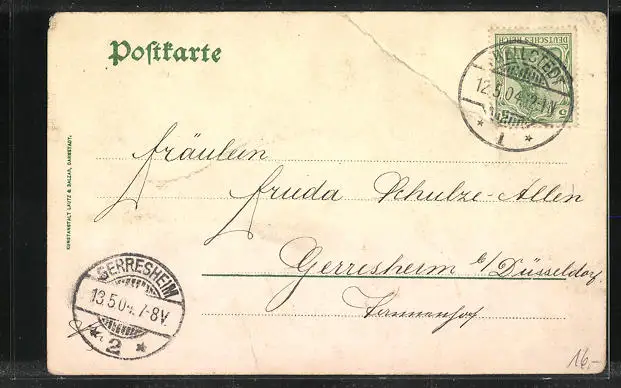 Postkarte
DEUTSCHES REICH
5
12.5.04. 2-1N
* 1 *
KUNSTANSTALT LAUTZ & BALZAR, DARMSTADT.
Fräulein
Frieda Schulze-Allen
Gerresheim b/Düsseldorf
Tannenhof
GERRESHEIM
13.5.04. 7-8V.
* 2 *
16,-